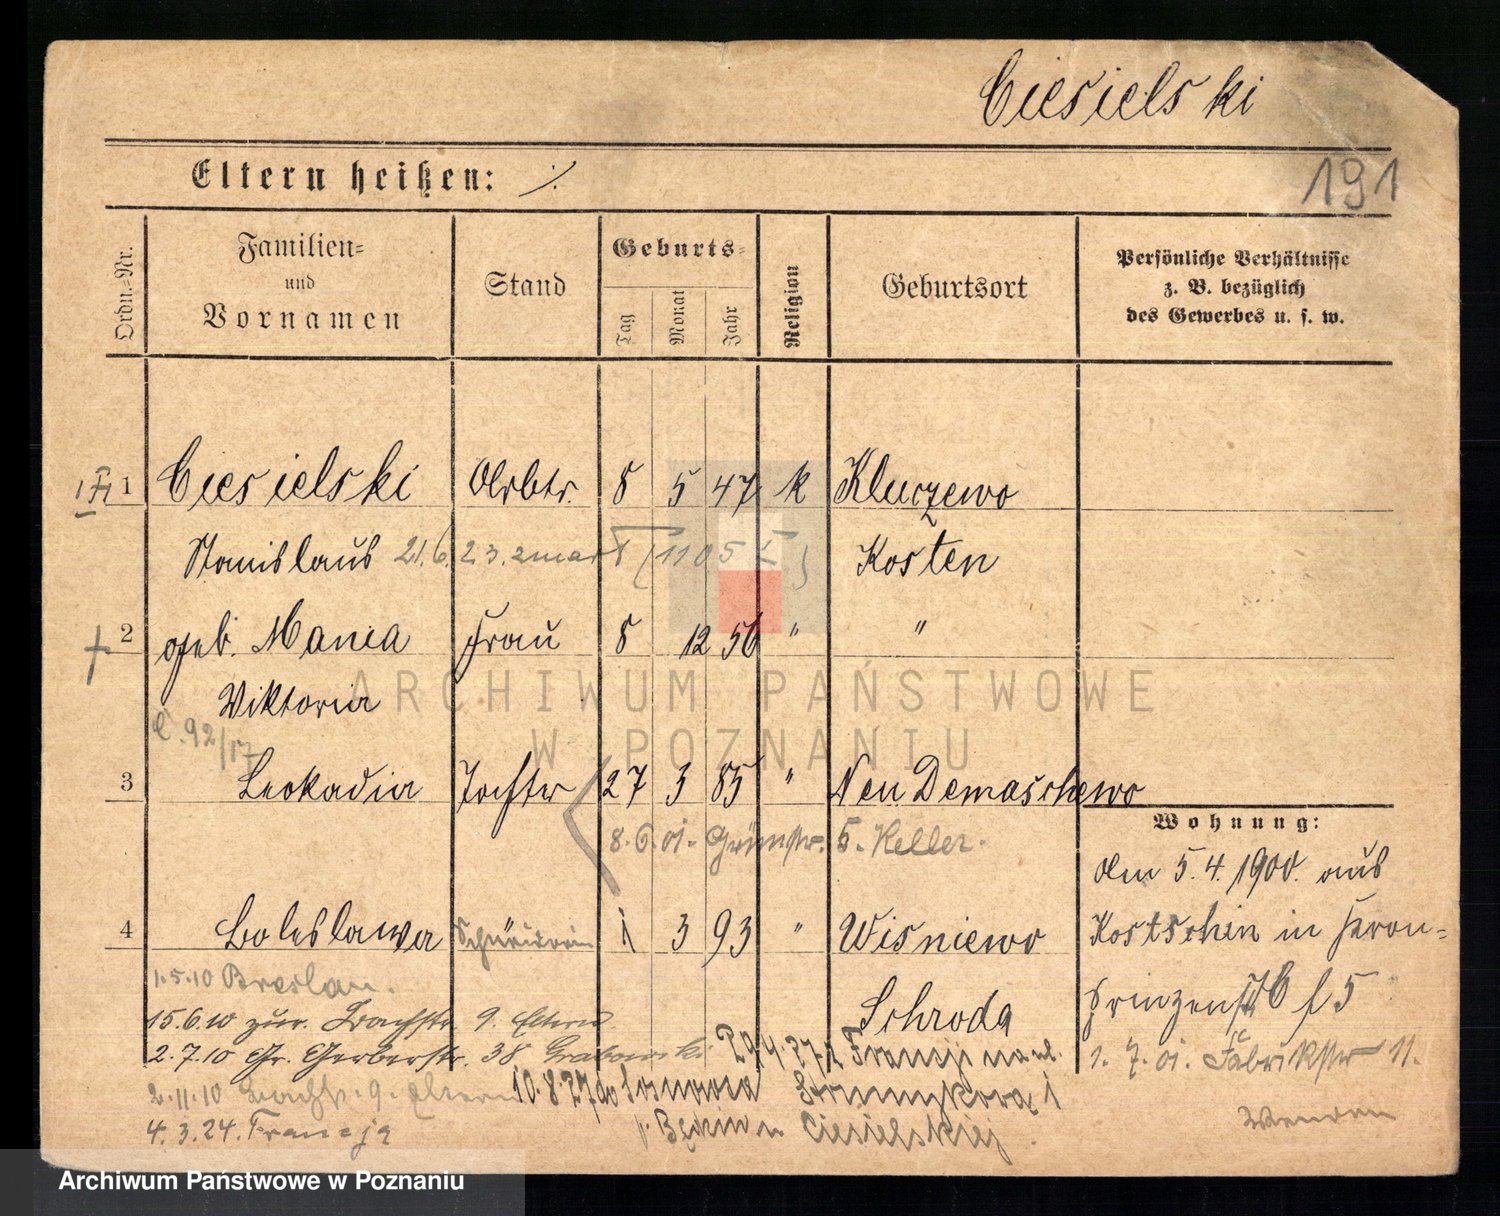 Ciesielski
191
Eltern heißen: ./.
Ordn.-Nr.
Familien-
und
Vornamen
Stand
Geburts-
Tag
Monat
Jahr
Religion
Geburtsort
Persönliche Verhältnisse
z. B. bezüglich
des Gewerbes u. s. w.
1 Ciesielski Arbtr. 8 5 47 k Kluczewo
Stanislaus 21.6.23. zmarł (1105 ) Kosten
2 geb. Mania Frau 8 12 56 " "
Viktoria
3 Leokadia Tochter 27 3 85 " Neu Demaschewo
8.6.01. Grünstr. 5. Keller.
Wohnung:
Am 5.4.1900. aus
4 Boleslawa 1 3 93 " Wisniewo
Kostschin in Kron-
prinzenstr. 76 f 5
Schroda
1.5.10 Breslau.
15.6.10 zur. 9. Eltern
2.7.10 Gr. Gerberstr. 38 Grabowski
29.4.27 z Francji
1.7.01. Fabrikstr 11.
2.11.10 9. Eltern
10.8.27 do Sosnowca
4.3.24. Francja
Ciesielskiej
ARCHIWUM PAŃSTWOWE
W POZNANIU
Archiwum Państwowe w Poznaniu